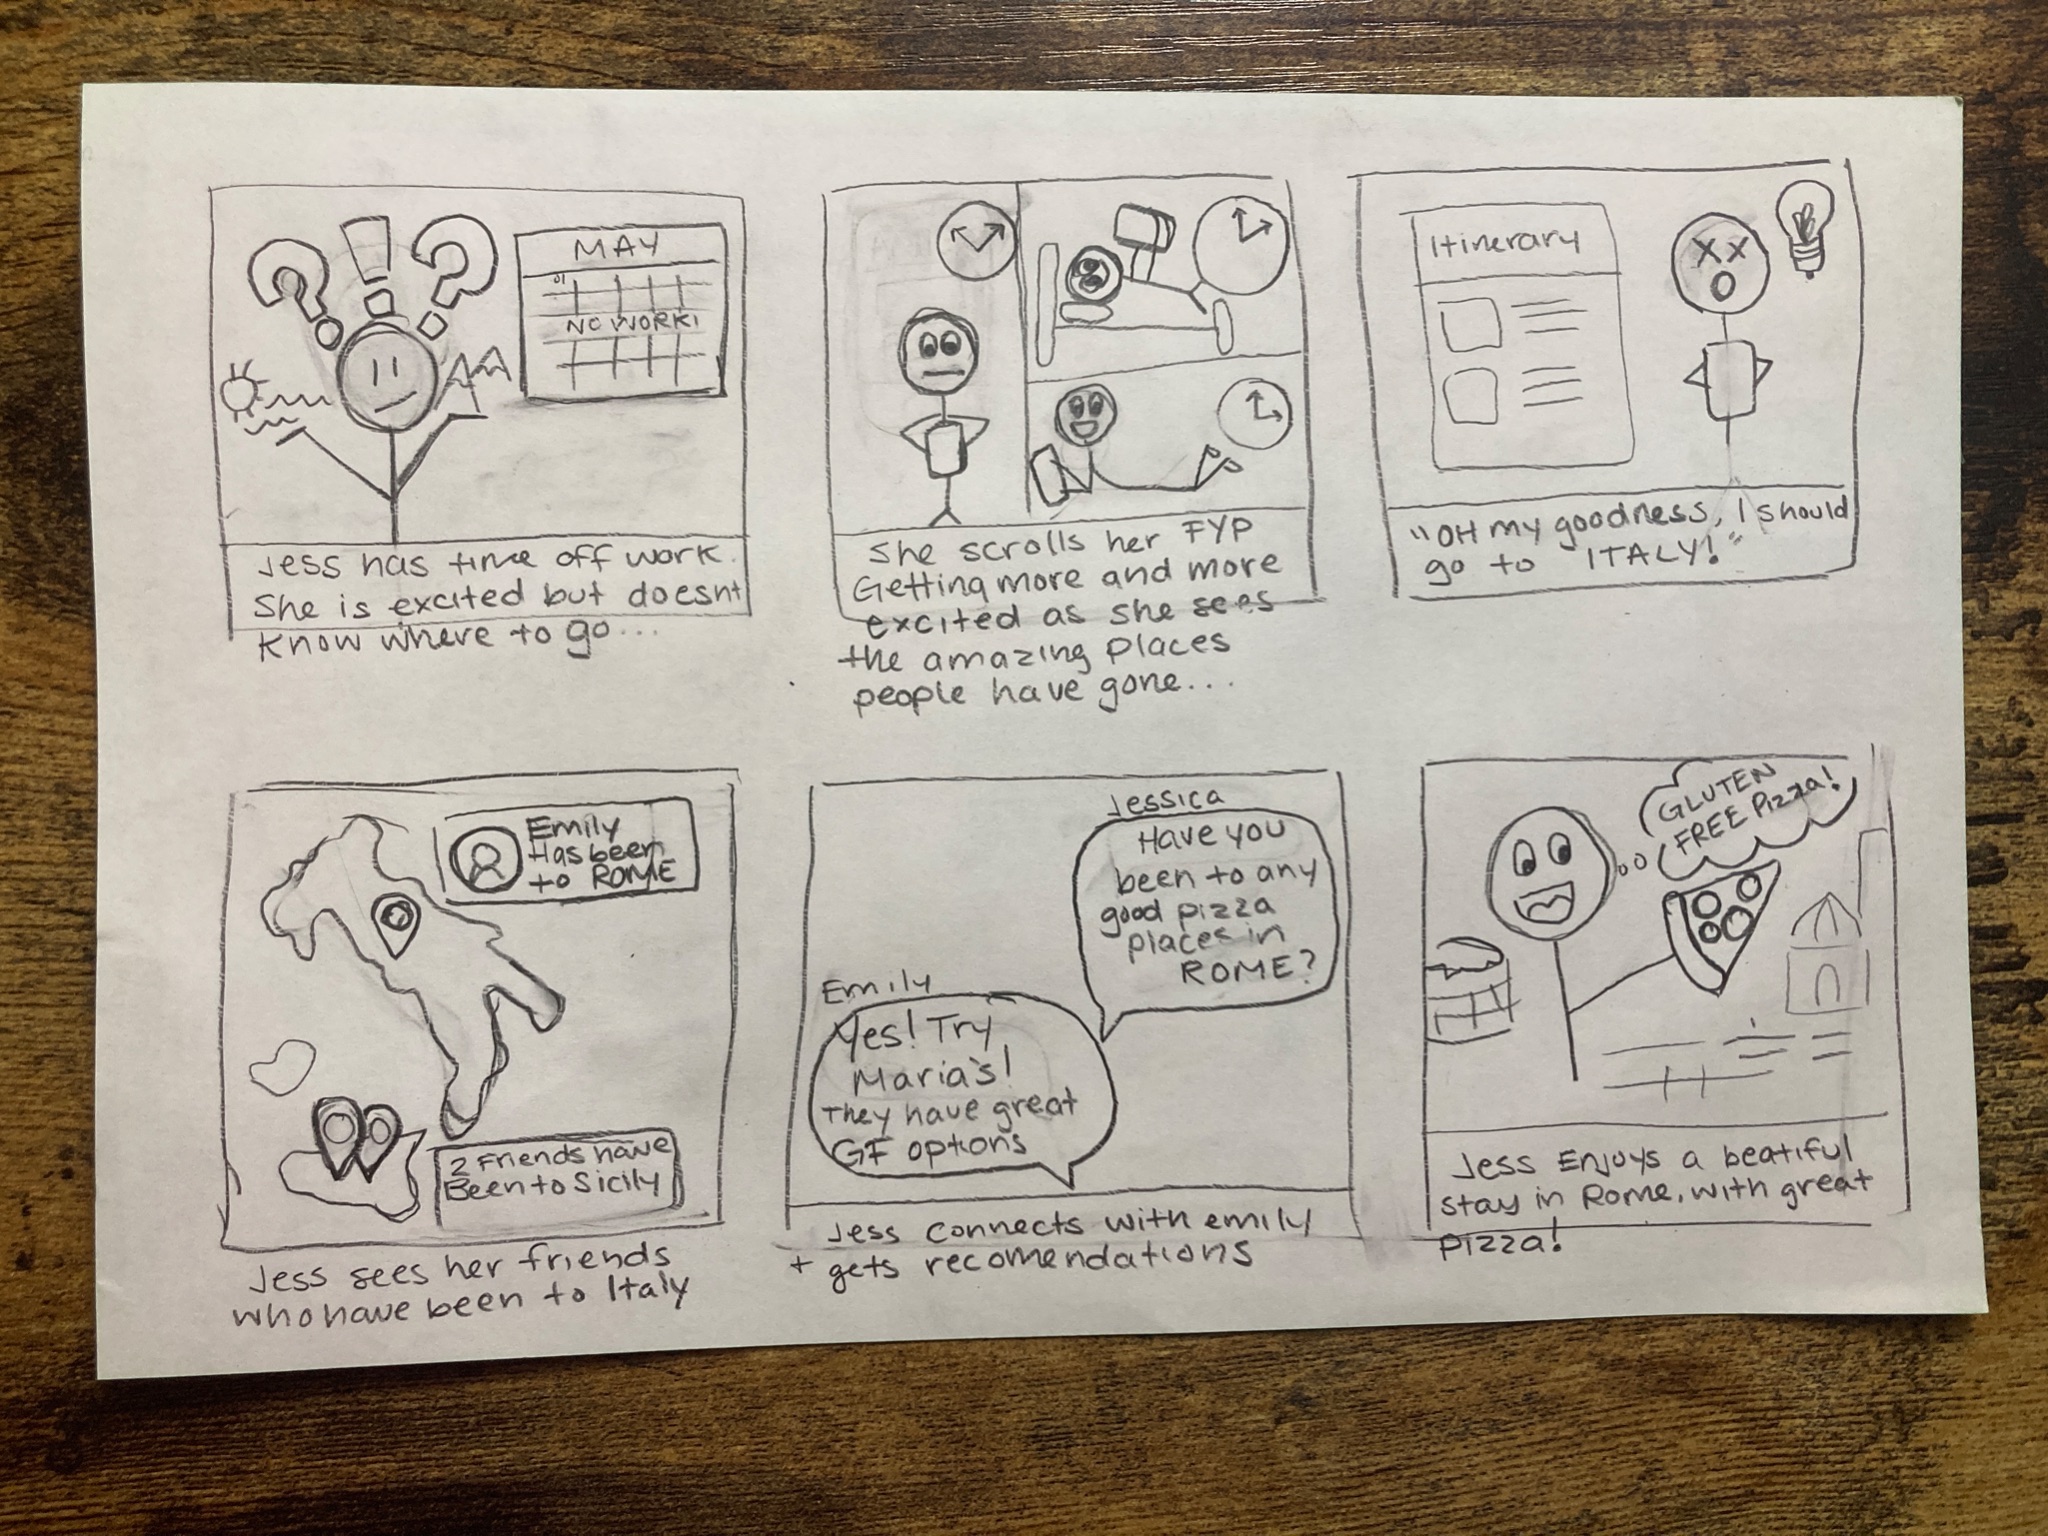 MAY
01
NO WORK!
Jess has time off work.
She is excited but doesnt
know where to go...
She scrolls her FYP
Getting more and more
excited as she sees
the amazing places
people have gone...
Itinerary
"OH my goodness, I should
go to ITALY!"
Emily
Has been
to ROME
2 Friends have
Been to Sicily
Jess sees her friends
who have been to Italy
Jessica
Have you
been to any
good pizza
places in
ROME?
Emily
Yes! Try
Maria's!
They have great
GF options
Jess connects with emily
+ gets recomendations
GLUTEN
FREE Pizza!
Jess Enjoys a beatiful
stay in Rome, with great
pizza!